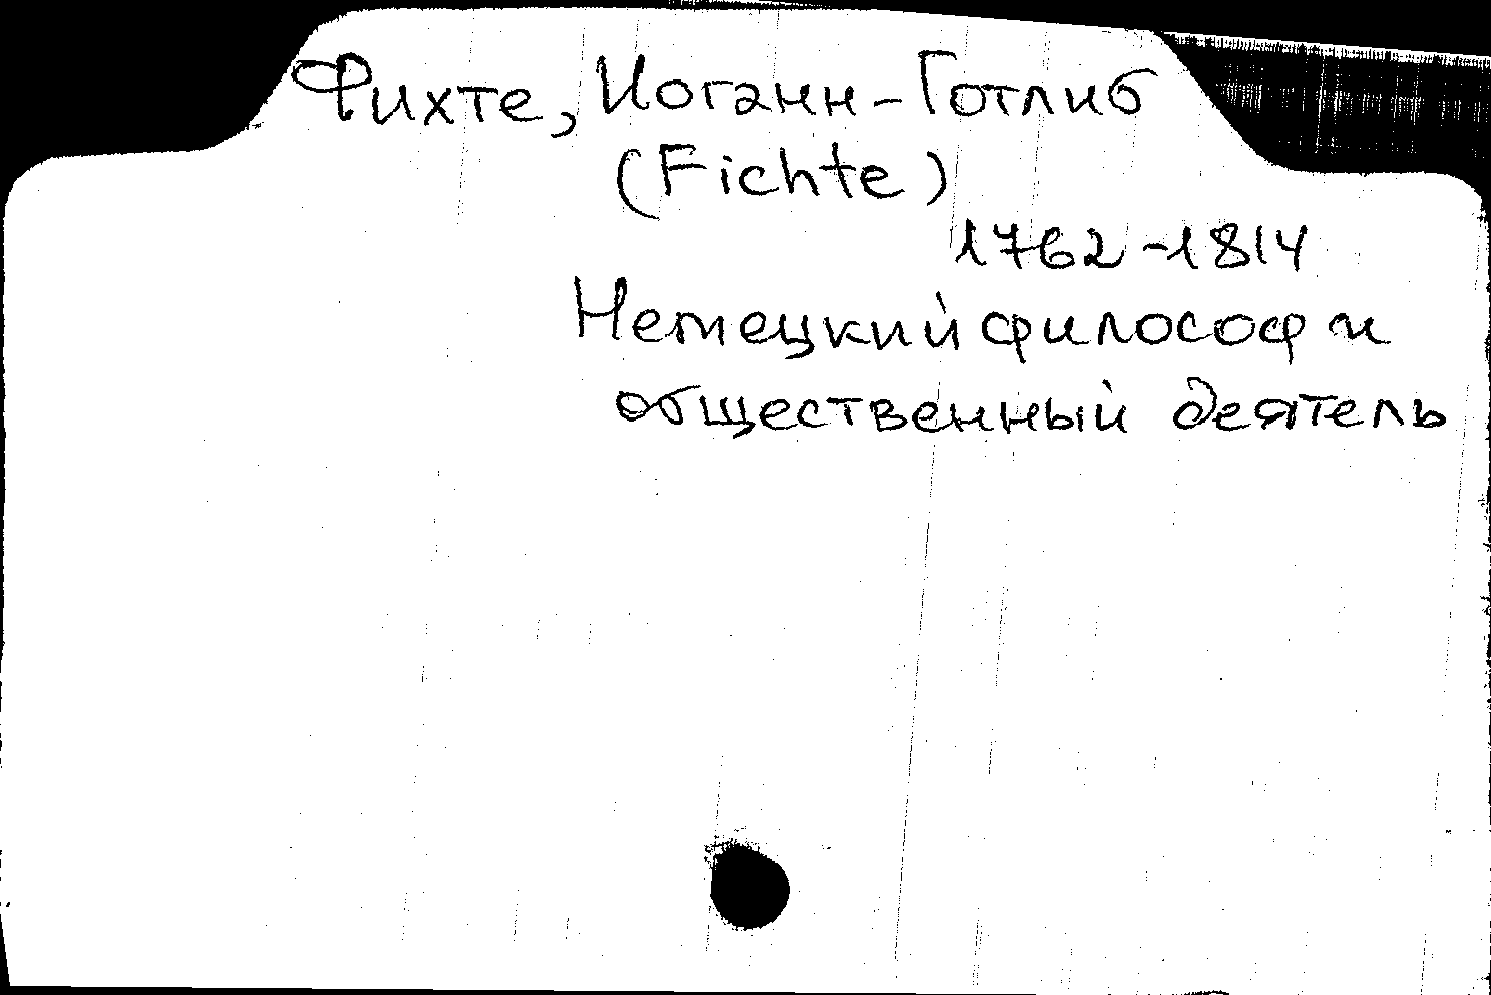 Фихте, Иоганн-Готлиб
(Fichte)
1762-1814
Немецкий философ и
общественный деятель